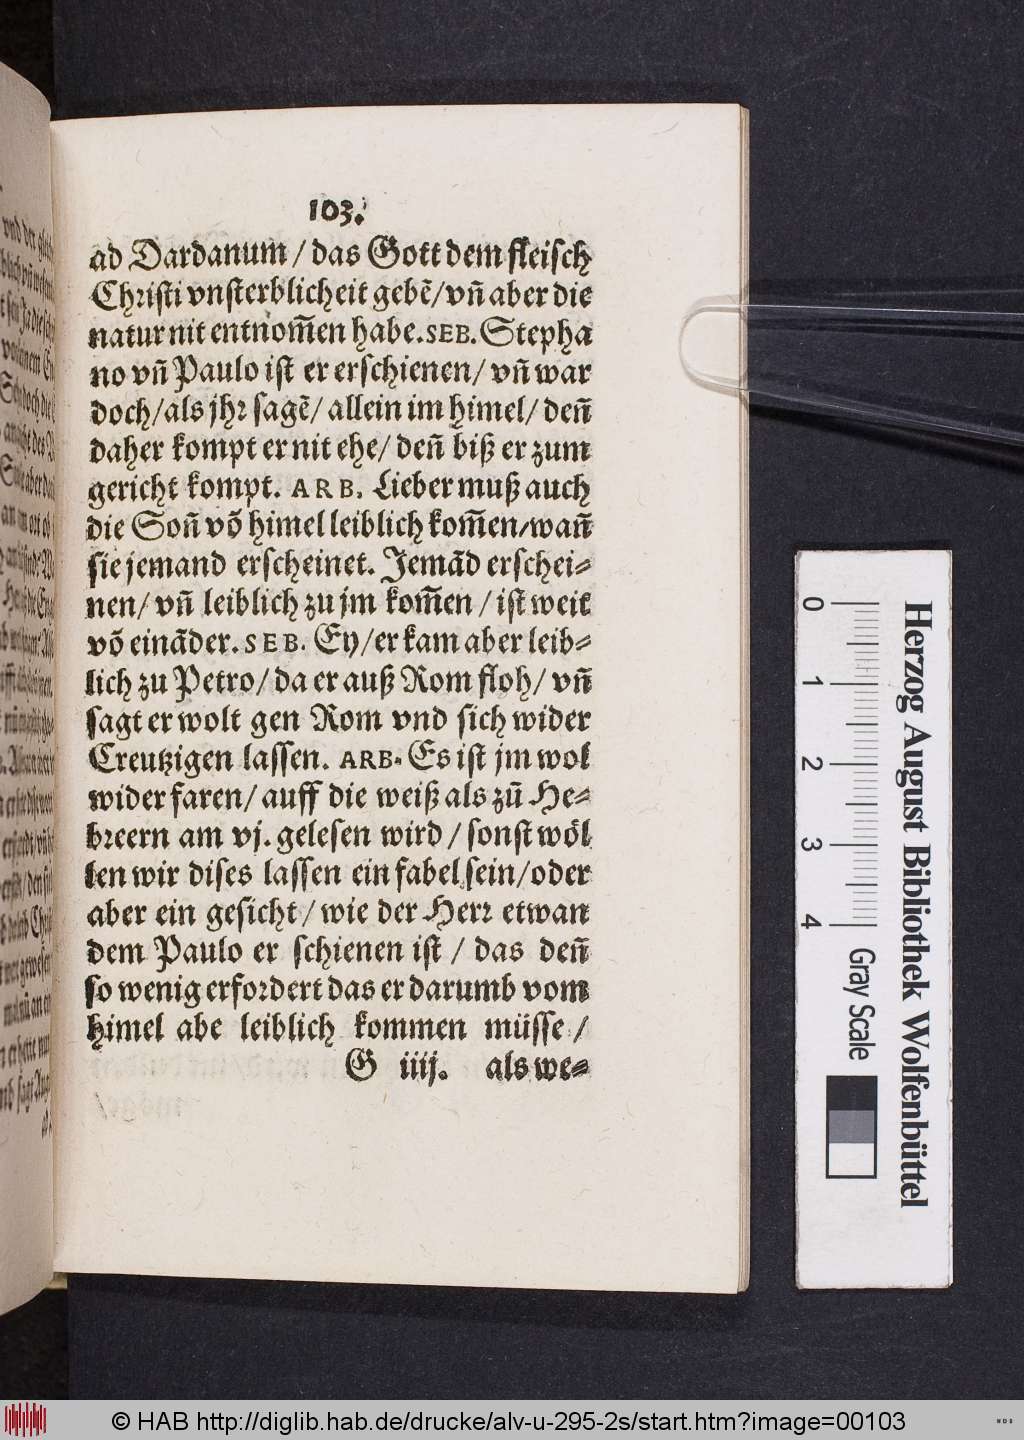 103.
ad Dardanum / das Gott dem fleisch
Christi vnsterblicheit gebẽ/vñ aber die
natur nit entnom̃en habe. SEB. Stepha
no vñ Paulo ist er erschienen/ vñ war
doch/als jhr sagẽ/ allein im himel/ deñ
daher kompt er nit ehe/ deñ biß er zum
gericht kompt. ARB. Lieber muß auch
die Soñ võ himel leiblich kom̃en/wañ
sie jemand erscheinet. Jemãd erschei⸗
nen/ vñ leiblich zu jm kom̃en / ist weit
võ einãder. SEB. Ey/er kam aber leib⸗
lich zu Petro/ da er auß Rom floh/ vñ
sagt er wolt gen Rom vnd sich wider
Creutzigen lassen. ARB. Es ist jm wol
wider faren/ auff die weiß als zũ He⸗
breern am vj. gelesen wird / sonst wöl
len wir dises lassen ein fabel sein/oder
aber ein gesicht / wie der Herr etwan
dem Paulo er schienen ist / das deñ
so wenig erfordert das er darumb vom
himel abe leiblich kommen müsse /
G iiij. als we⸗
Herzog August Bibliothek Wolfenbüttel
0 1 2 3 4
Gray Scale
© HAB http://diglib.hab.de/drucke/alv-u-295-2s/start.htm?image=00103